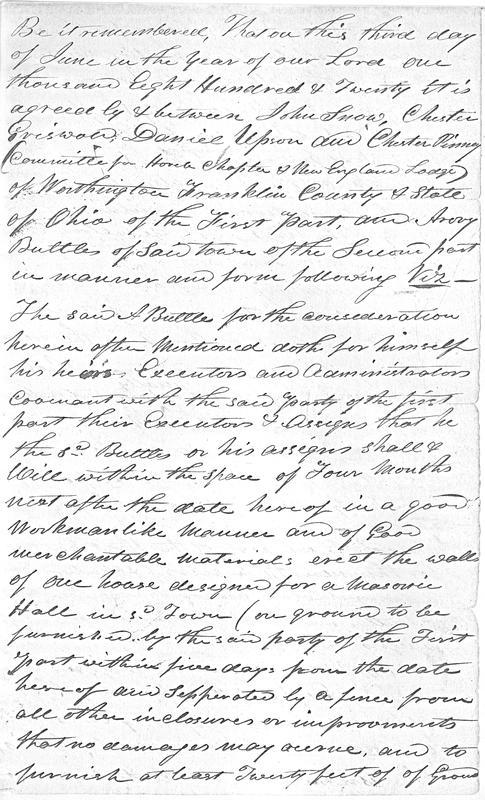 Be it remembered, That on this third day
of June in the Year of our Lord one
thousand Eight Hundred & Twenty it is
agreed by & between John Snow, Chester
Griswold, Daniel Upson and Chester Pinney
(Committee for Horeb Chapter & New England Lodge)
of Worthington Franklin County & State
of Ohio of the First Part, and Arory
Buttles of Said town of the Second part
in manner and form following Viz —
The said A Buttle for the consideration
herein after Mentioned doth for himself
his heirs, Executors and Administrators
Covenant with the said Party of the first
part their Executors & Assigns that he
the sd. Buttles or his assigns shall &
Will within the space of Four Months
next after the date hereof in a good
Workmanlike Manner and of Good
merchantable materials erect the walls
of one house designed for a Masonic
Hall in sd. Town (on ground to be
furnished by the said party of the First
part within five days from the date
hereof and Sepperated by a fence from
all other inclosures or improvments
that no damages may accrue, and to
furnish at least Twenty feet of of Ground